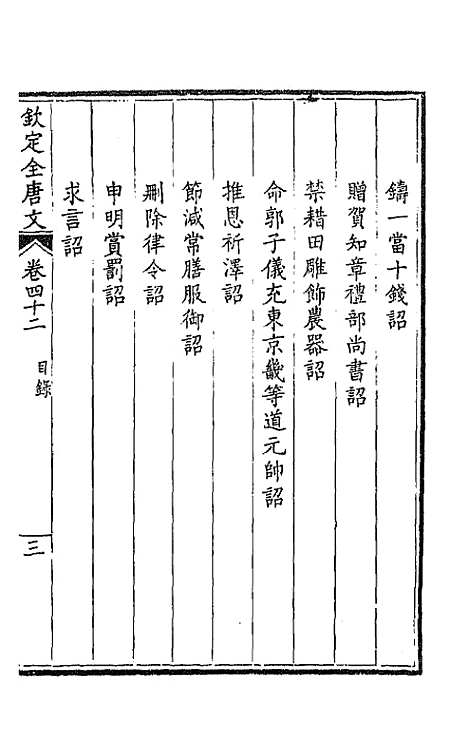 鑄一當十錢詔
贈賀知章禮部尚書詔
禁耤田雕飾農器詔
命郭子儀充東京畿等道元帥詔
推恩祈澤詔
節減常膳服御詔
刪除律令詔
申明賞罰詔
求言詔
欽定全唐文 卷四十二 目錄 三